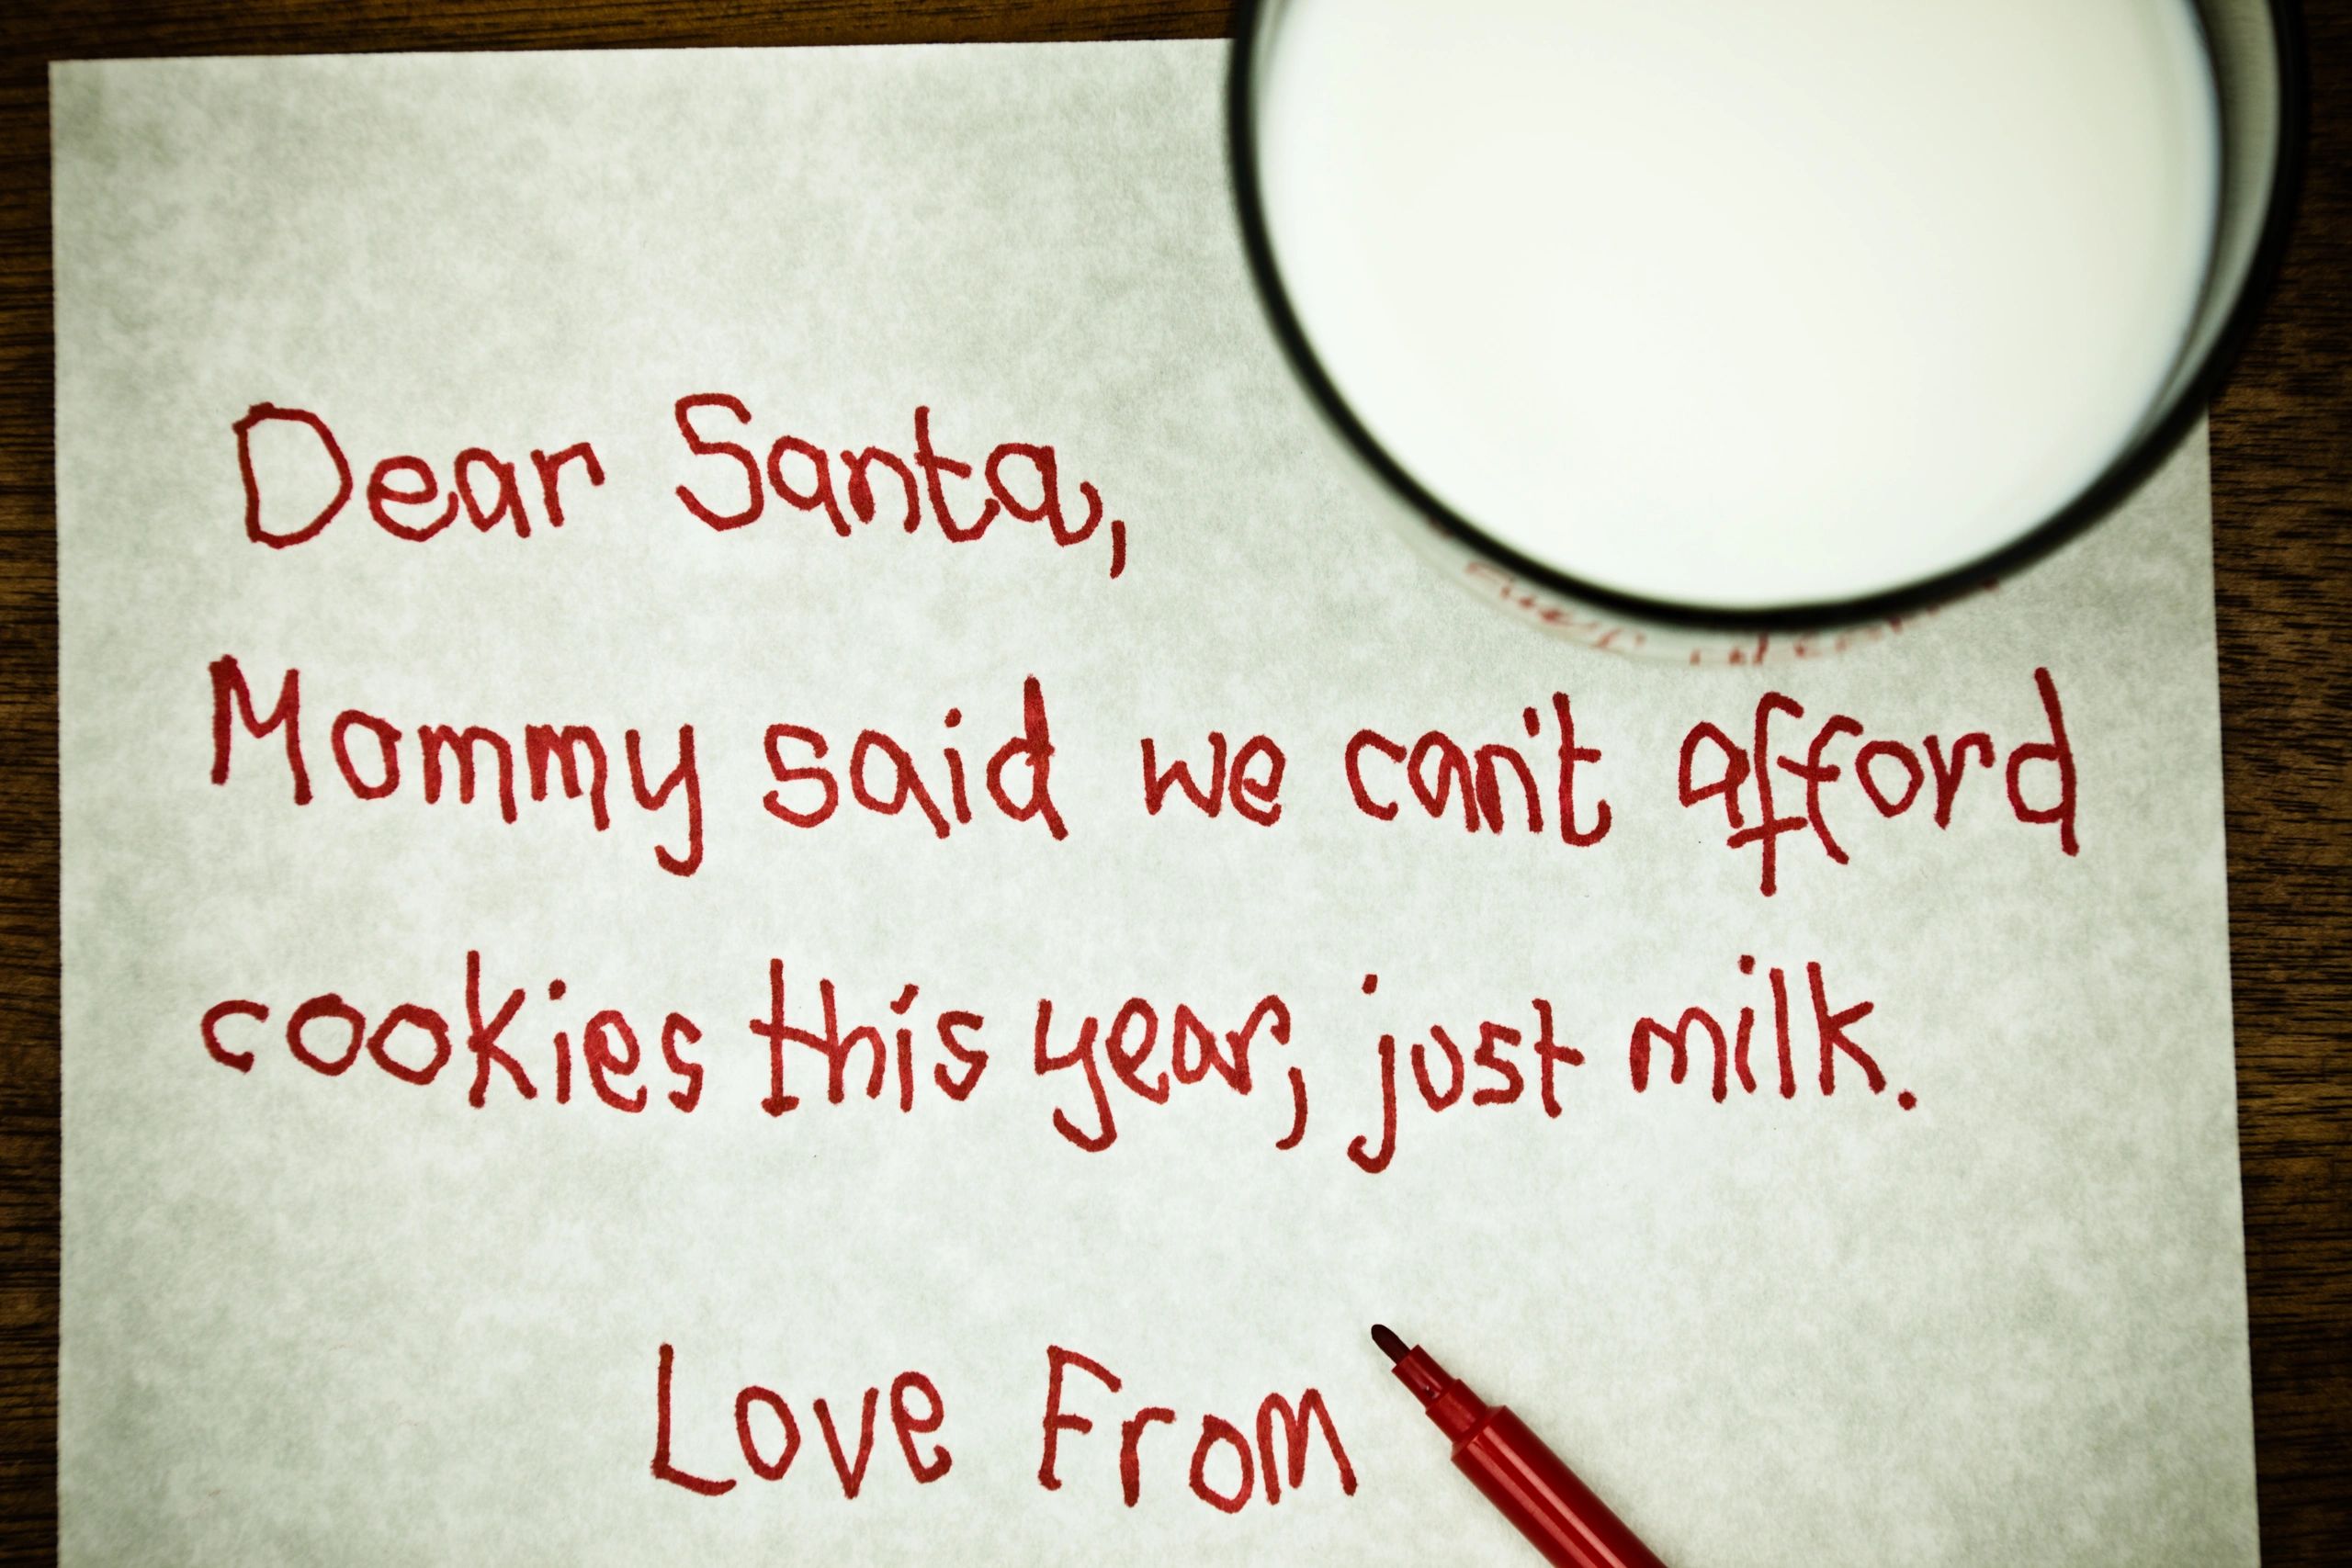 Dear Santa,
Mommy said we can't afford
cookies this year, just milk.
Love From